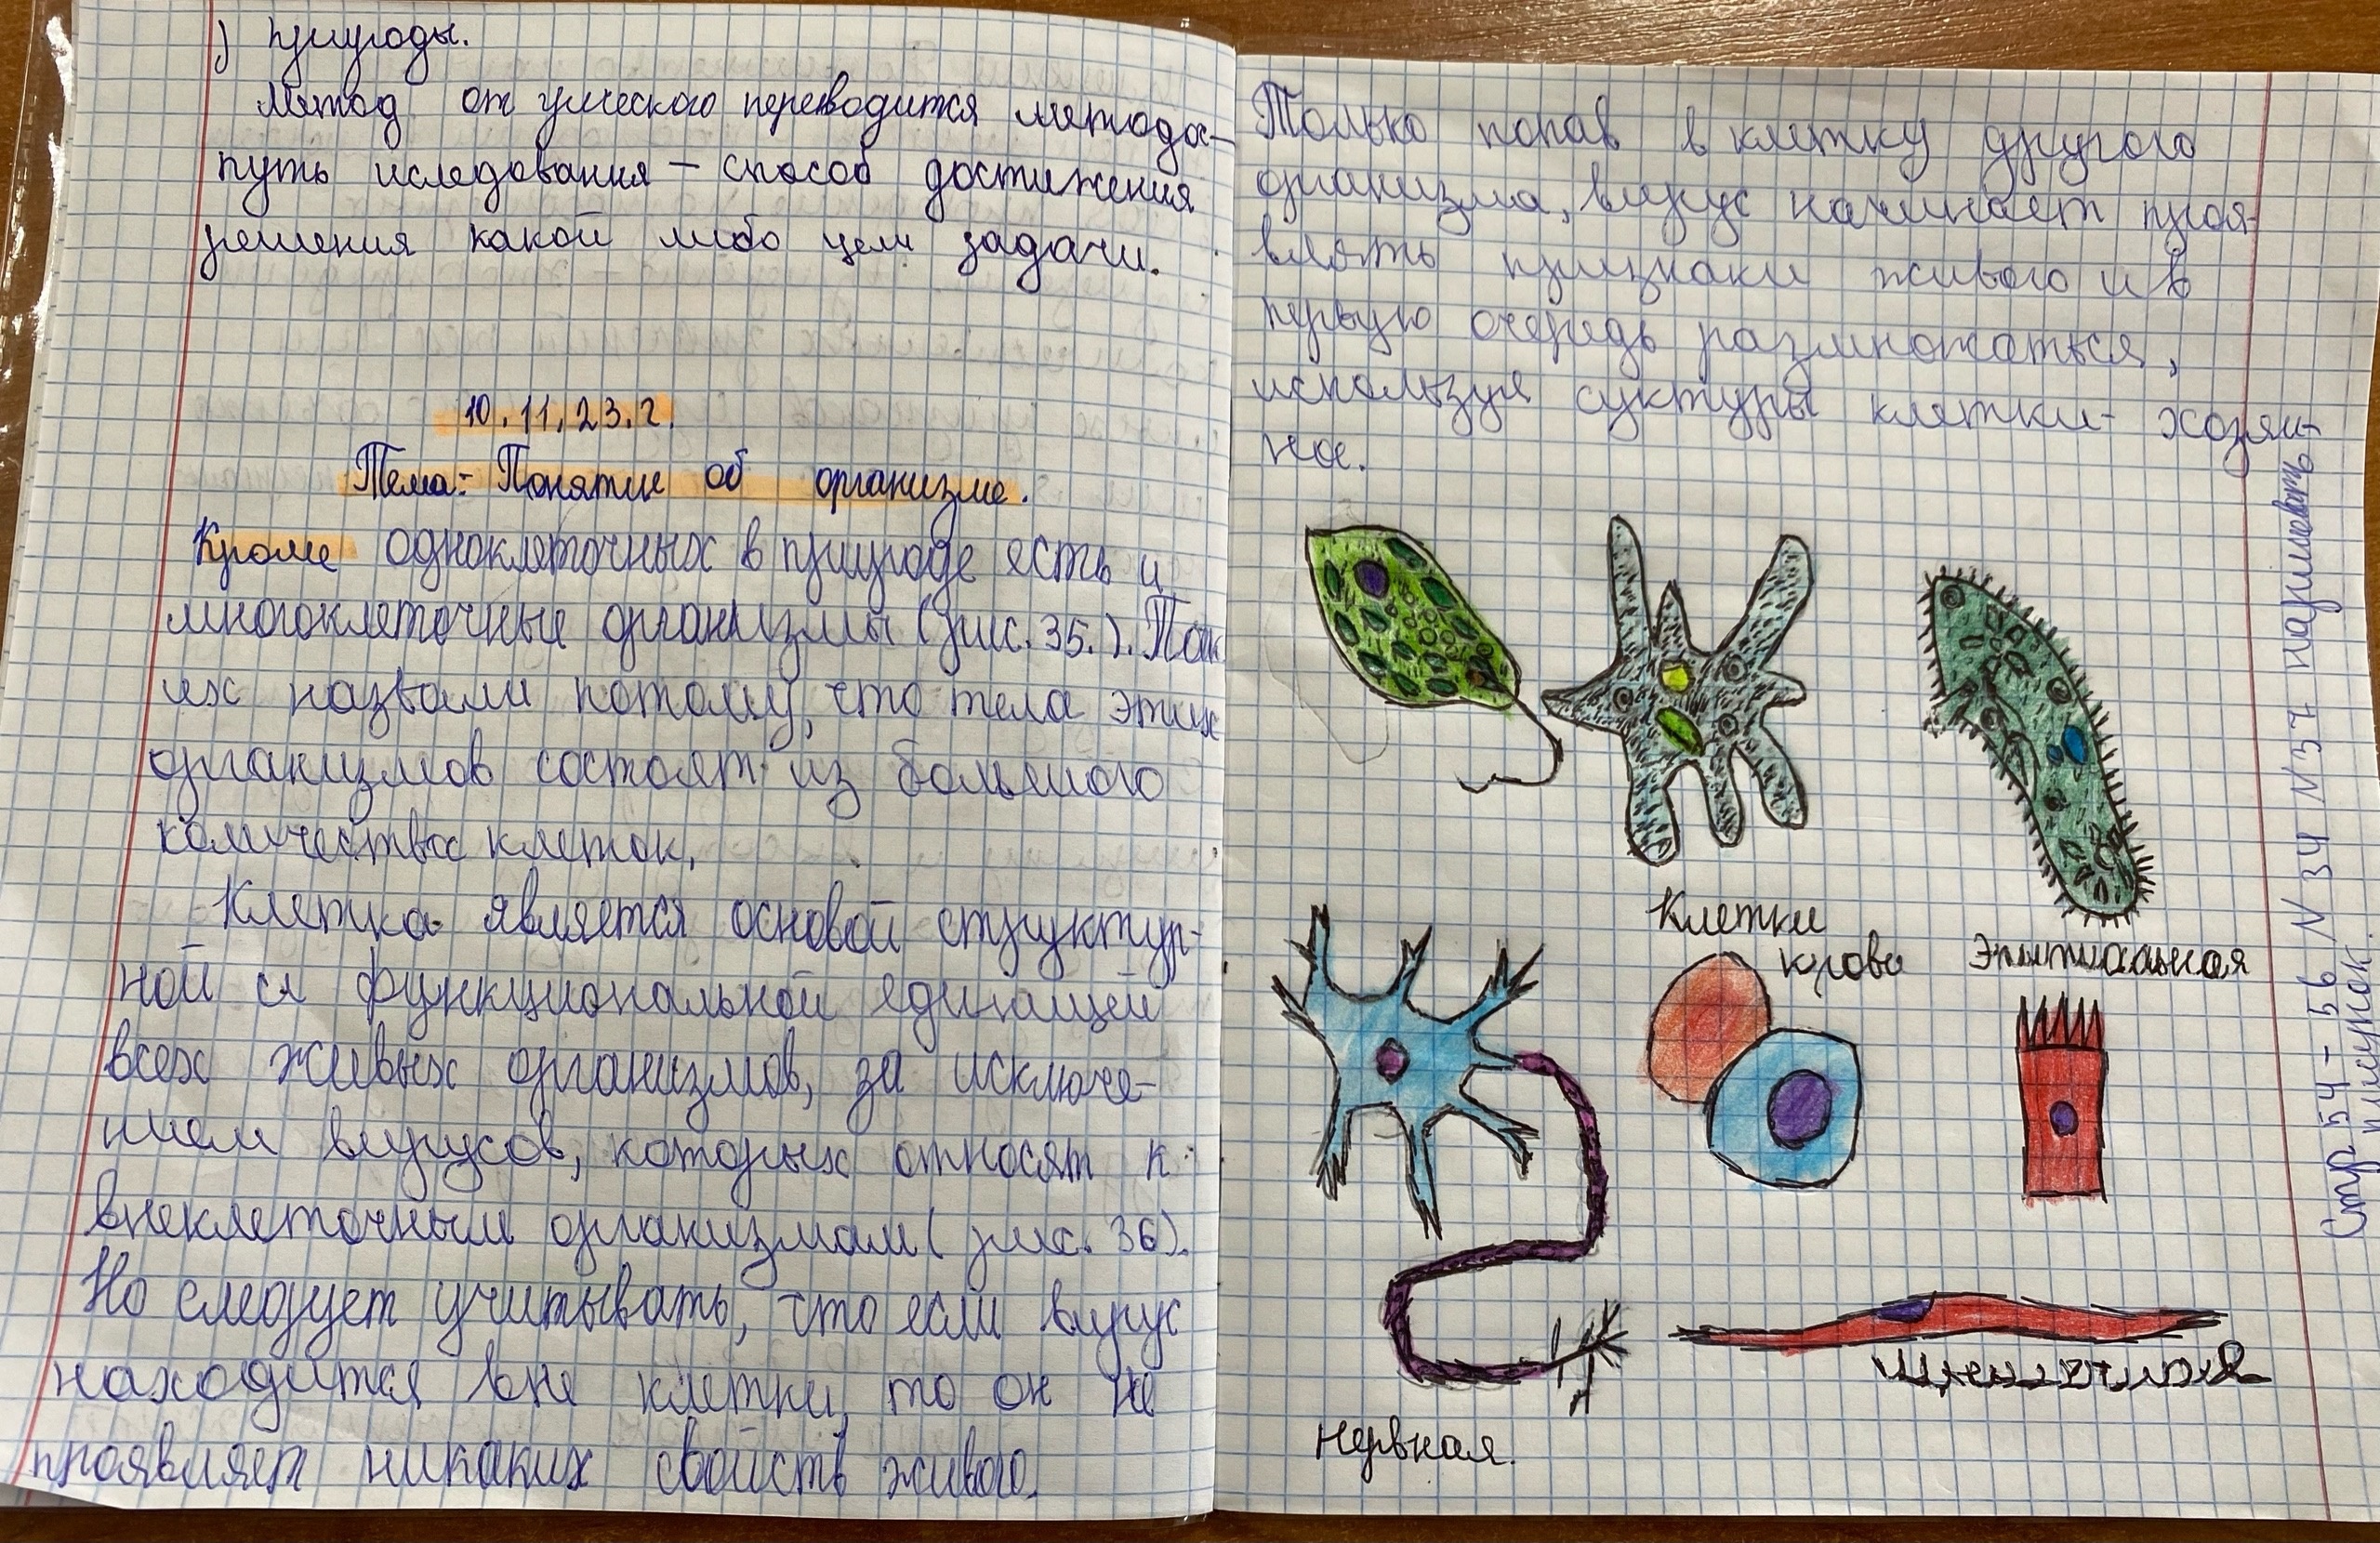 ) природы.
Метод от греческого переводится метода-
путь иследования - способ достижения
решения какой либо цели задачи.
10.11.23.г.
Тема: Понятие об организме.
Кроме одноклеточных в природе есть и
многоклеточные организмы (рис. 35.). Так
их назвали потому, что тела этих
организмов состоят из большого
количества клеток,
Клетка является основой структур-
ной и функциональной единицей
всех живых организмов, за исключе-
нием вирусов, которых относят к
внеклеточным организмам (рис. 36).
Но следует учитывать, что если вирус
находится вне клетки, то он не
проявляет никаких свойств живого.
Только попав в клетку другого
организма, вирус начинает проя-
влять признаки живого и в
первую очередь размножаться,
используя суктуры клетки- хозяи-
на.
Клетки
крови
Нервная.
Стр 54-56 N 34 N 37 нарисовать
рисунок.